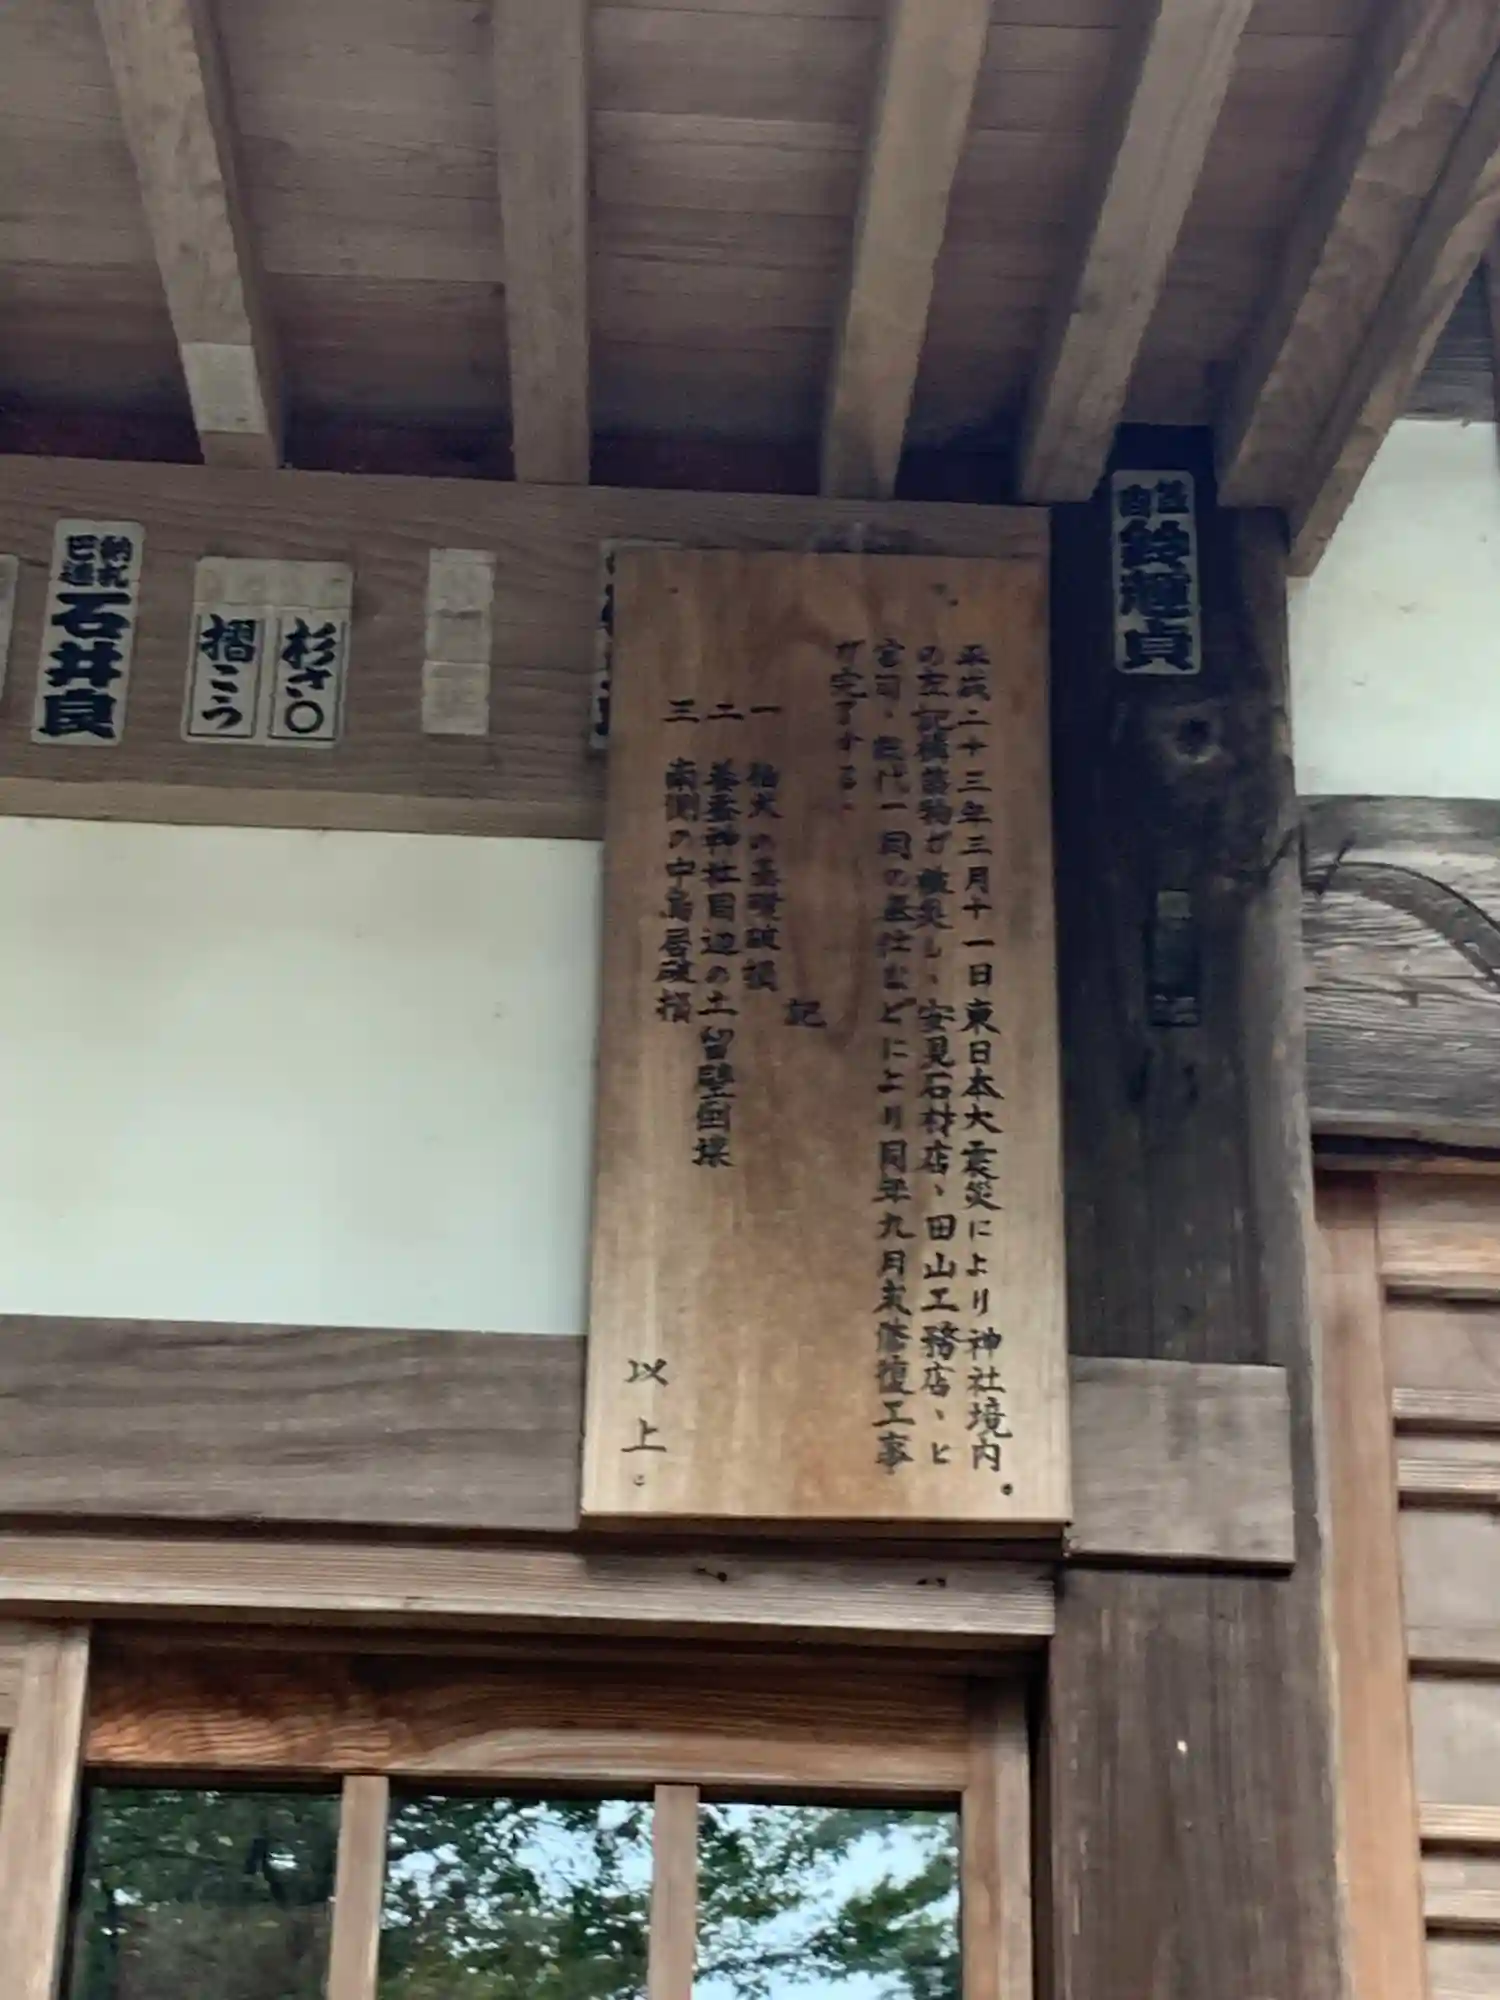 平成二十三年三月十一日東日本大震災により神社境内
の左記構築物が被災し、安見石材店、田山工務店、ヒ
宮司、総代一同の奉仕などにより同年九月末修復工事
が完了する。
記
一 狛犬の基礎破損
二 養蚕神社周辺の土留壁倒壊
三 南側の中鳥居破損
以上。
鈴種貞
杉さ〇
摺こう
納札
巴連
石井良